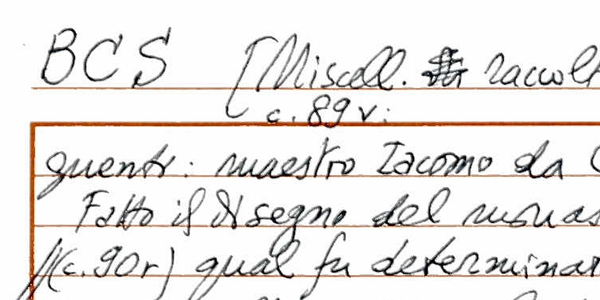 BCS [Miscell. raccolt
c. 89 v:
guenti: maestro Iacomo da C
Fatto il disegno del monas
//(c. 90r) qual fu determinat